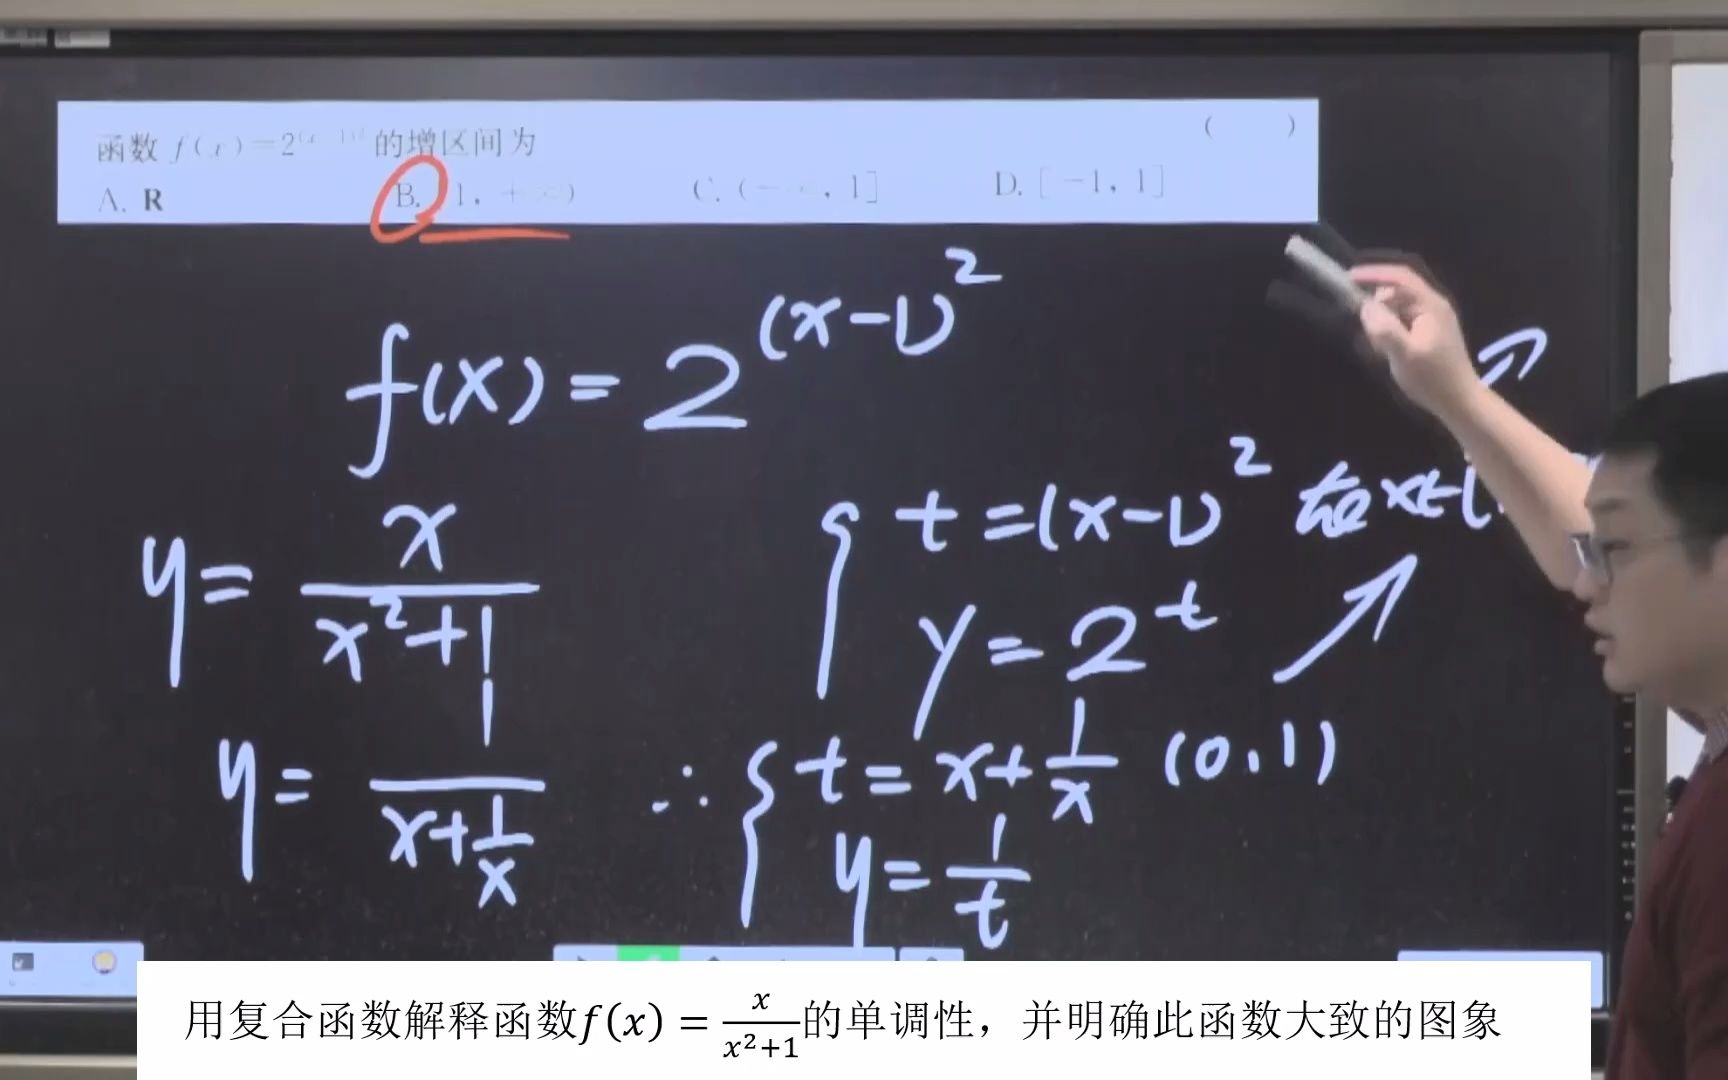 函数 f(x)=2^{(x-1)^2} 的增区间为 ( )
A. R B. [1, +∞) C. (-∞, 1] D. [-1, 1]
f(x) = 2^{(x-1)^2}
y = x/(x^2+1)
{ t = (x-1)^2 在 x∈(
y = 2^t
y = 1/(x+1/x)
∴ { t = x + 1/x (0,1)
y = 1/t
用复合函数解释函数f(x) = x/(x^2+1)的单调性，并明确此函数大致的图象